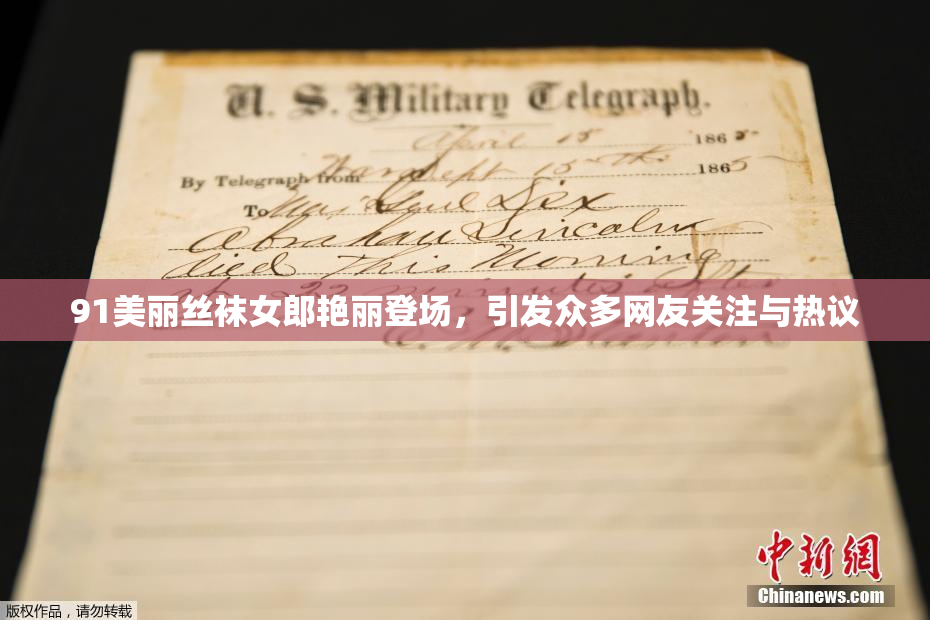 U. S. Military Telegraph.
April 15 1865
By Telegraph from War Dept 15th 1865
To Maj Genl Dix
Abraham Lincoln
died This Morning
at 22 minutes after
91美丽丝袜女郎艳丽登场，引发众多网友关注与热议
E. M. Stanton
中新网
Chinanews.com
版权作品，请勿转载